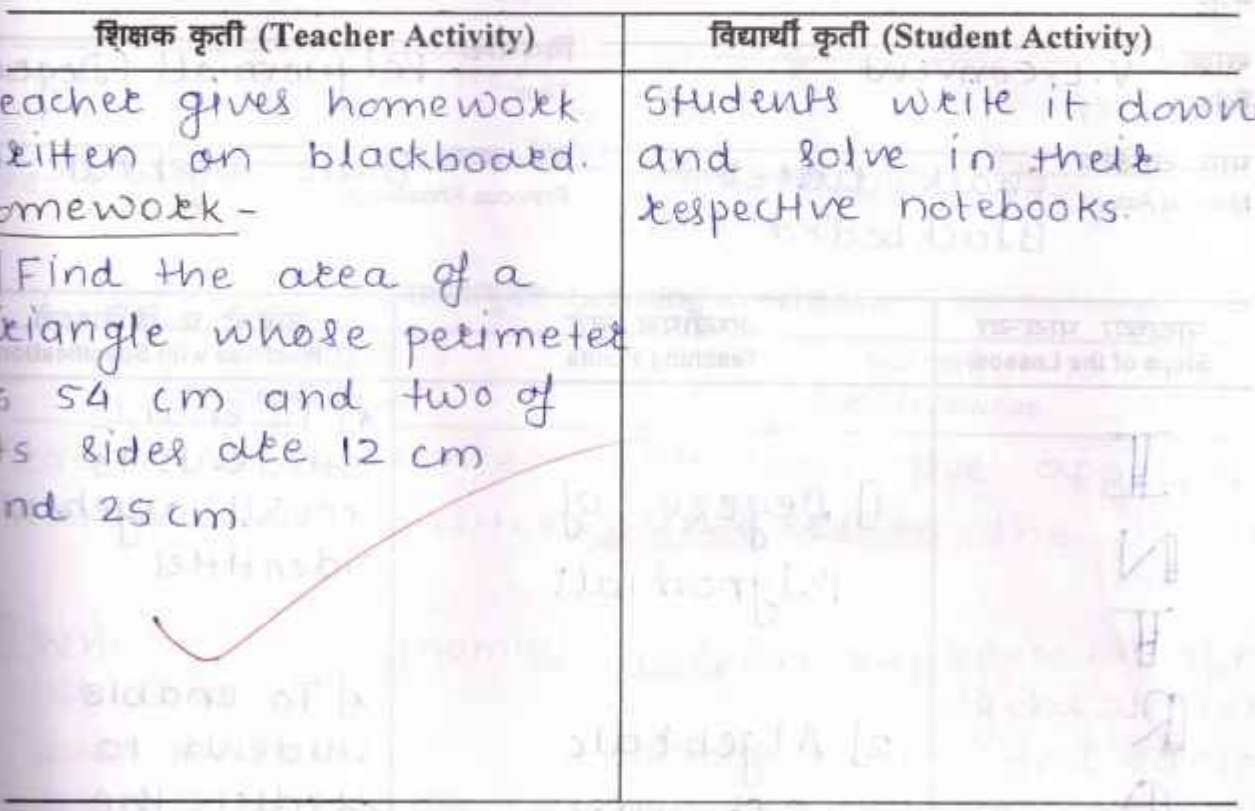 शिक्षक कृती (Teacher Activity)
विद्यार्थी कृती (Student Activity)
eacher gives homework
ritten on blackboard.
omework -
Find the area of a
riangle whose perimeter
s 54 cm and two of
ts sides are 12 cm
nd 25 cm.
Students write it down
and solve in their
respective notebooks.